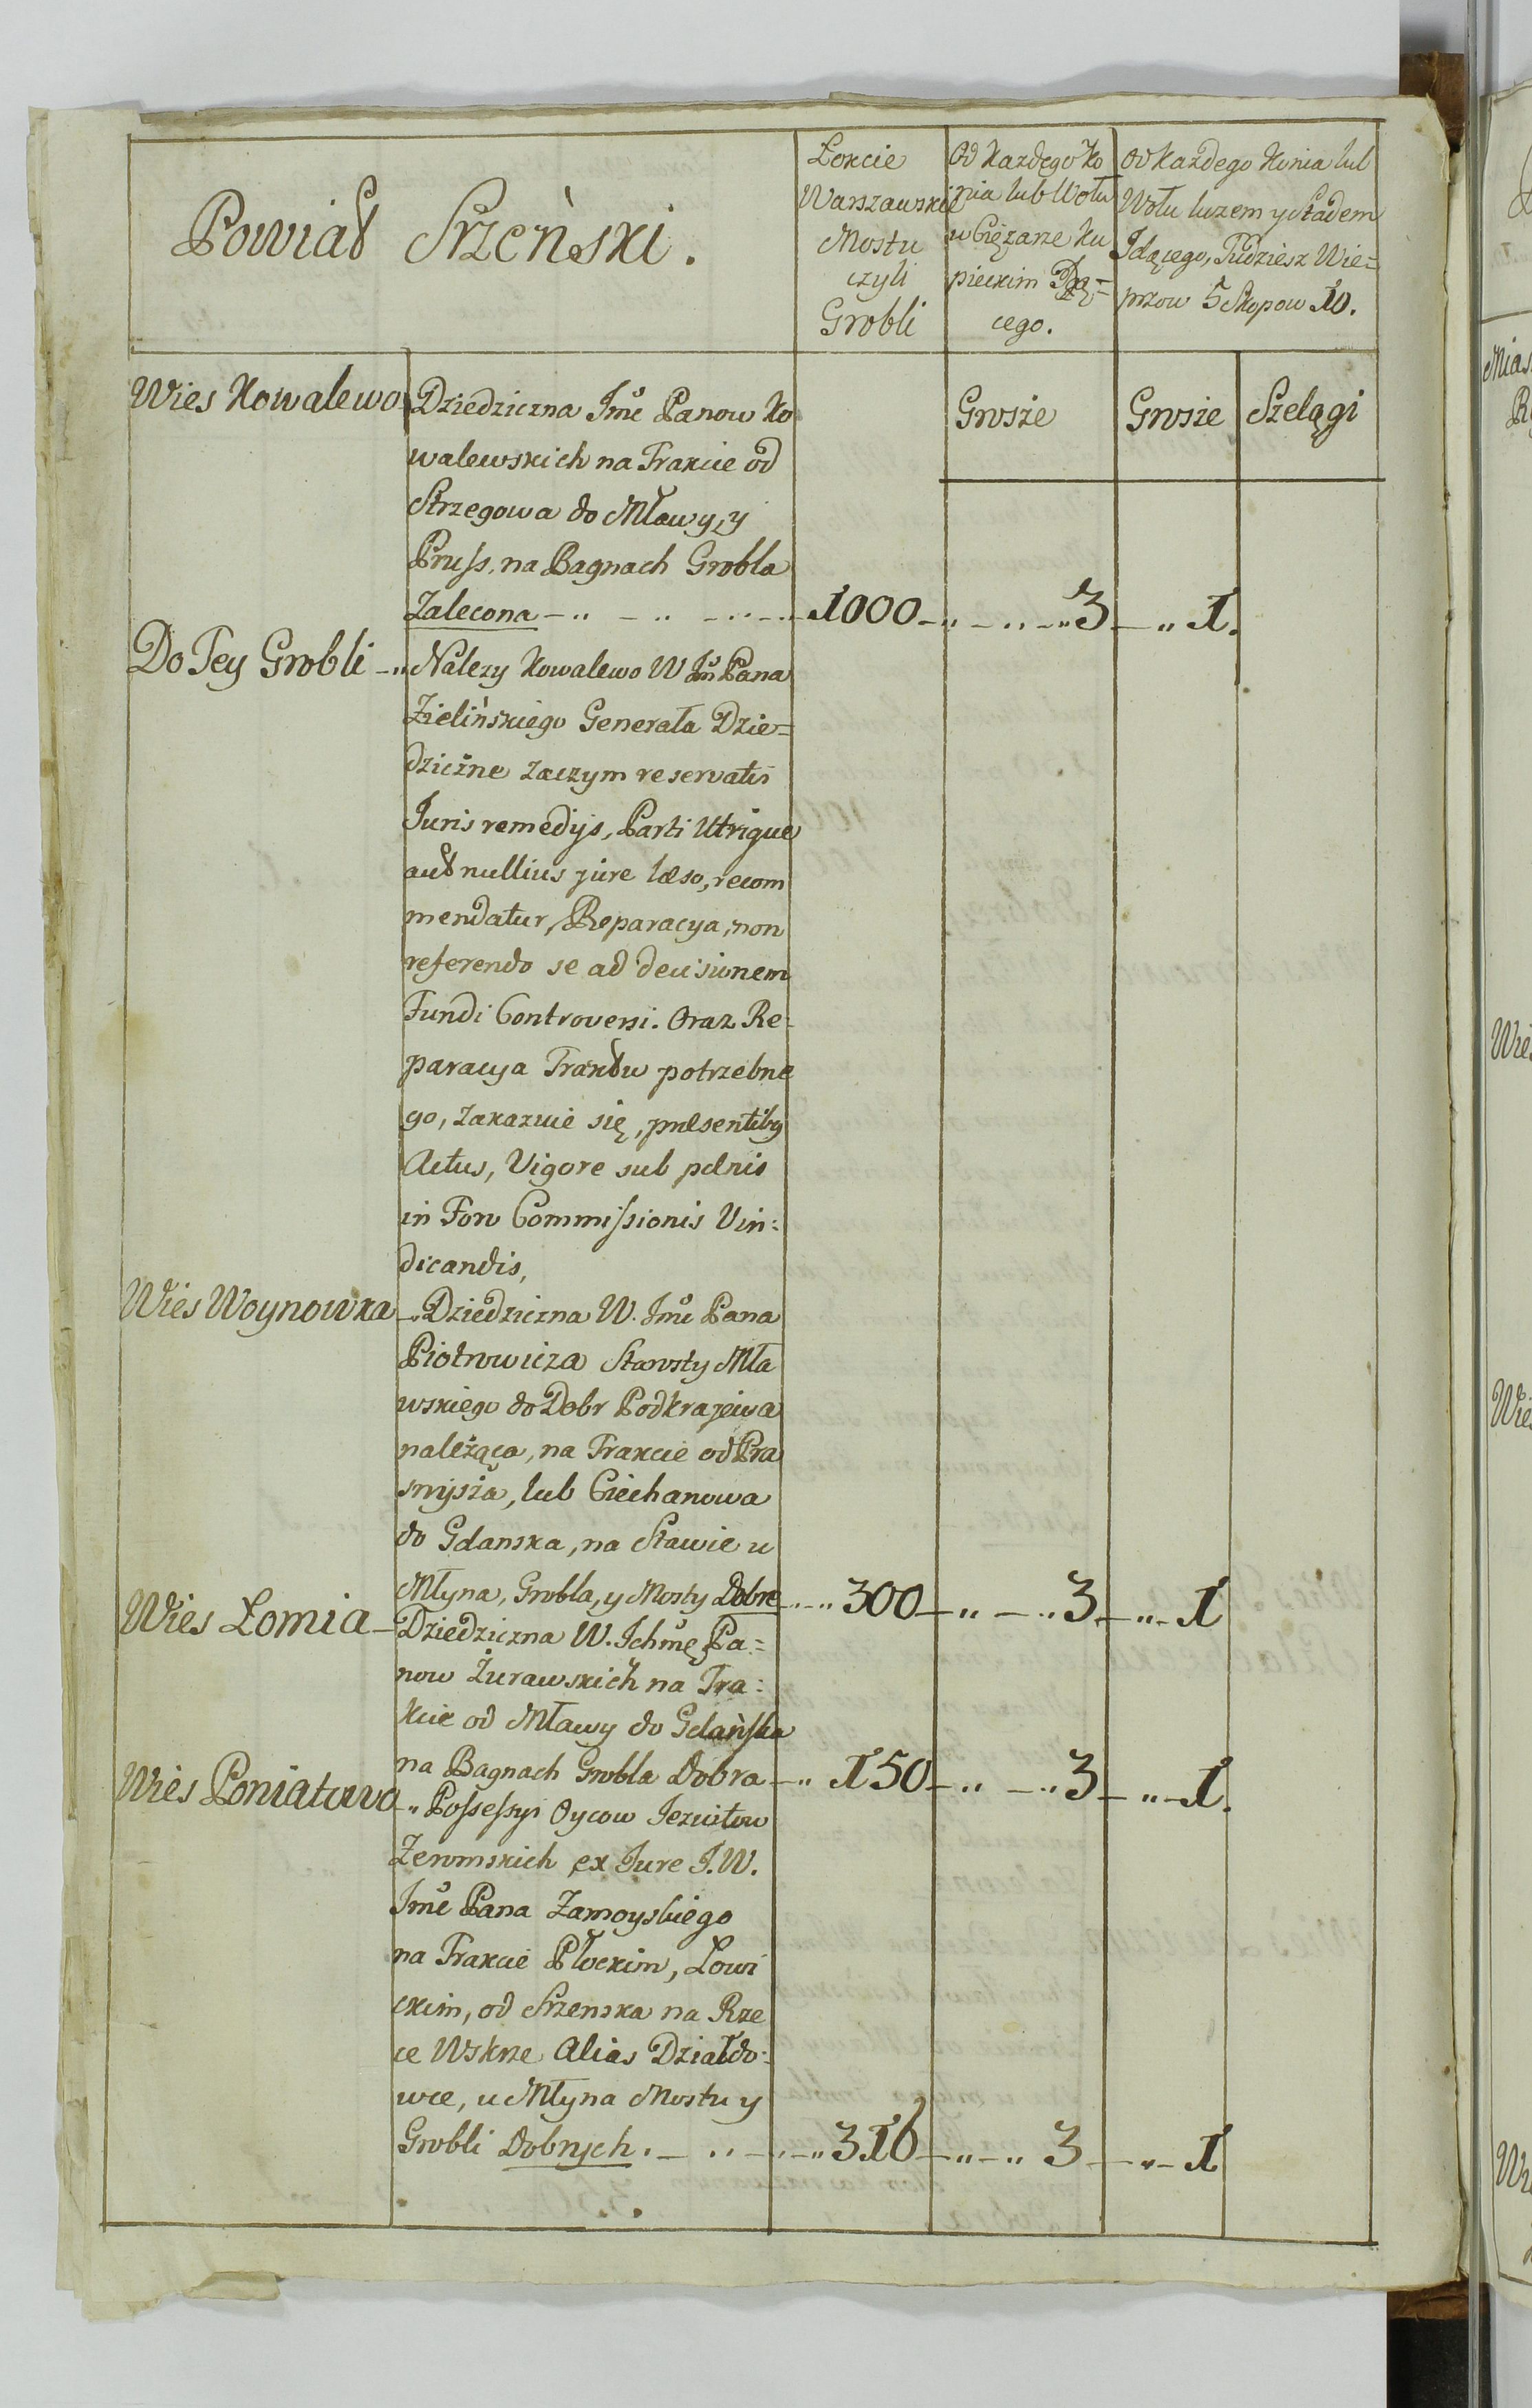 Powiat Srzeński.
Łokcie
Warszawskie
Mostu
czyli
Grobli
Od każdego Ko
nia lub Wołu
w Ciężarze Ku
pieckim
cego.
Od każdego Konia lub
Wołu luzem y Stadem
Idącego, Tudziesz Wie=
przow 5 Skopow 10.
Grosze
Grosze
Szelągi
Wies Kowalewo
Dziedziczna Jmć Panow Ko
walewskich na Trakcie od
Strzegowa do Mławy, y
Pruss, na Bagnach Grobla
Zalecona 1000 3 1.
Do Tey Grobli
Należy Kowalewo W Jmć Pana
Zielińskiego Generała Dzie=
dziczne zaczym reservatis
Juris remedijs, Parti Utrique
aut nullius jure læso, recom
mendatur, Reparacya, non
referendo se ad decisionem
Fundi Controversi. Oraz Re-
paracya Traktu potrzebne
go, zakazuie się, præsentibq
Actus, Vigore sub pænis
in Foro Commissionis Vin-
dicandis,
Wieś Woynowka
Dziedziczna W. Jmć Pana
Piotrowicza Starosty Mła
wskiego do Dobr Podkrajewa
należąca, na Trakcie od Pra
snysza, lub Ciechanowa
do Gdanska, na Stawie u
Młyna, Grobla, y Mosty Dobre 300 3 1
Wies Łomia
Dziedziczna W. Ichmć Pa=
now Żurawskich na Tra-
kcie od Mławy do Gdańska
na Bagnach Grobla Dobra 150 3 1.
Wies Poniatowo
Possessyi Oycow Jezuitow
Żeromskich ex Jure J.W.
Jmć Pana Zamoyskiego
na Trakcie Płockim, Łowi
ckim, od Srzenska na Rze
ce Wskrze Alias Działdo-
wce, u Młyna Mostu y
Grobli Dobrych. 316 3 1